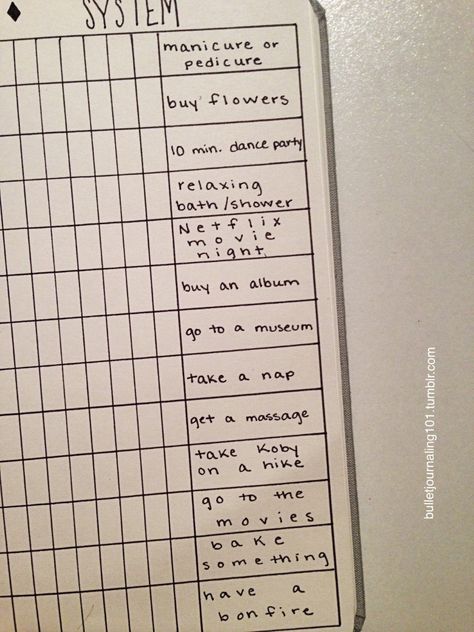 SYSTEM
manicure or
pedicure
buy flowers
10 min. dance party
relaxing
bath/shower
Netflix
movie
night
buy an album
go to a museum
take a nap
get a massage
take Koby
on a hike
go to the
movies
bake
something
have a
bonfire
bulletjournaling101.tumblr.com